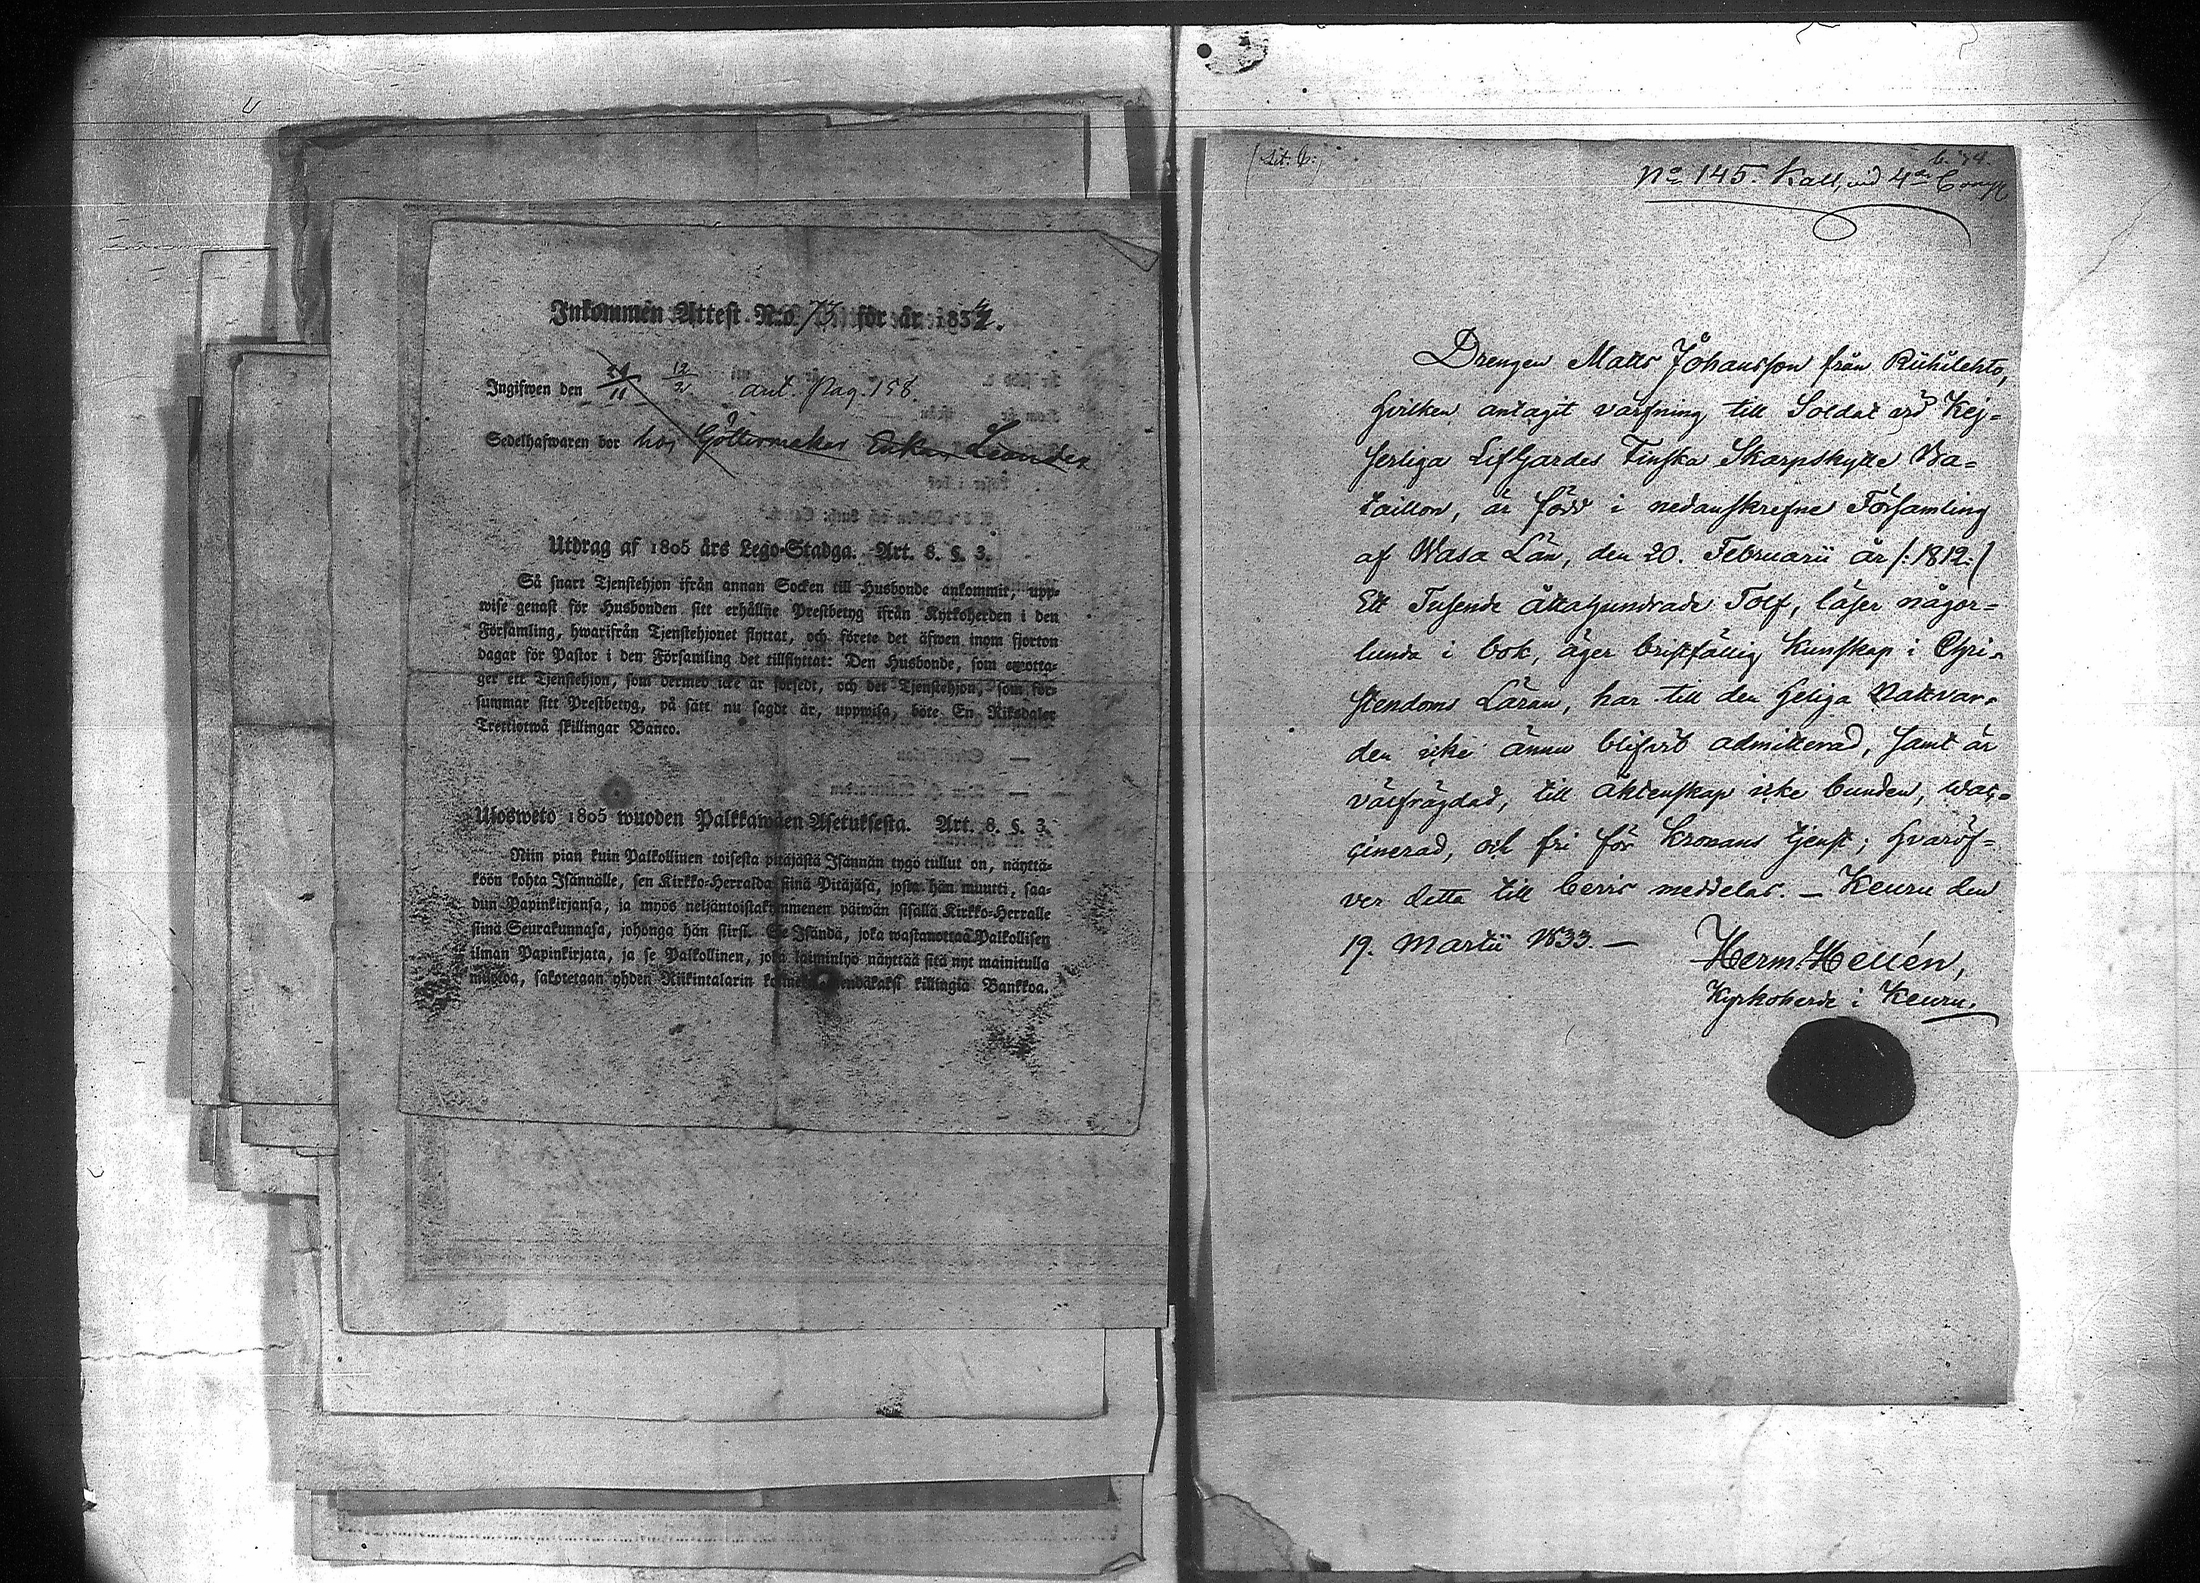 Inkommen Attest N:o 73 för år 1834.
Ingifwen den 12/2 arit. Pag. 158.
Sedelhafwaren bor hos Enkan
Utdrag af 1805 års Lego-Stadga. Art. 8. §. 3.
Så snart Tjenstehjon ifrån annan Socken till Husbonde ankommit, upp-
wise genast för Husbonden sitt erhållne Prestbetyg ifrån Kyrkoherden i den
Församling, hwarifrån Tjenstehjonet flyttat, och förete det äfwen inom fjorton
dagar för Pastor i den Församling det tillflyttat: Den Husbonde, som emotta-
ger ett Tjenstehjon, som dermed icke är försedt, och det Tjenstehjon, som för-
summar sitt Prestbetyg, på sätt nu sagdt är, uppwisa, böte En Riksdaler
Trettiotwå skillingar Banco.
Ulosweto 1805 wuoden Palkkawäen Asetuksesta. Art. 8. §. 3.
Niin pian kuin Palkollinen toisesta pitäjästä Isännän tygö tullut on, näyttä-
köön kohta Isännälle, sen Kirkko-Herralda siinä Pitäjäsä, josta hän muutti, saa-
dun Papinkirjansa, ja myös neljäntoistakymmenen päiwän sisällä Kirkko-Herralle
siinä Seurakunnasa, johonga hän siirsi. Se Isändä, joka wastanottaa Palkollisen
ilman Papinkirjata, ja se Palkollinen, joka laiminlyö näyttää sitä nyt mainitulla
muotoa, sakotetaan yhden Riikintalarin kolmekymmendäkaksi killingiä Bankkoa.
N:o 145. Kall, vid 4de Comp
Drengen Matts Johansson från Riihilehto,
hvilken antagit värfning till Soldat vid Kej-
serliga LifGardes Finska Skarpskytte Ba-
taillon, är född i nedanskrefne Församling
af Wasa Län, den 20. Februarii år /:1812:/
Ett Tusende Åttahundrade Tolf, läser någor-
lunda i bok, äger bristfällig Kunskap i Chri-
stendoms Läran, har till den heliga Nattvar-
den icke ännu blifvit admitterad, samt är
välfrägdad, till äktenskap icke bunden, vac-
cinerad, och fri för Kronans tjenst; hvaröf-
ver detta till bevis meddelas. — Keuru den
19. Martii 1833. —
Herm: Hellén,
Kyrkoherde i Keuru.